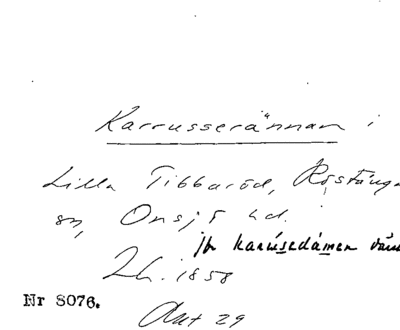 Karrusserännan i
Lilla Tibbaröd, Röstånga
sn, Onsjö hd.
jfr karrúsedámen
Lh. 1858
Nr 8076.
Akt 29